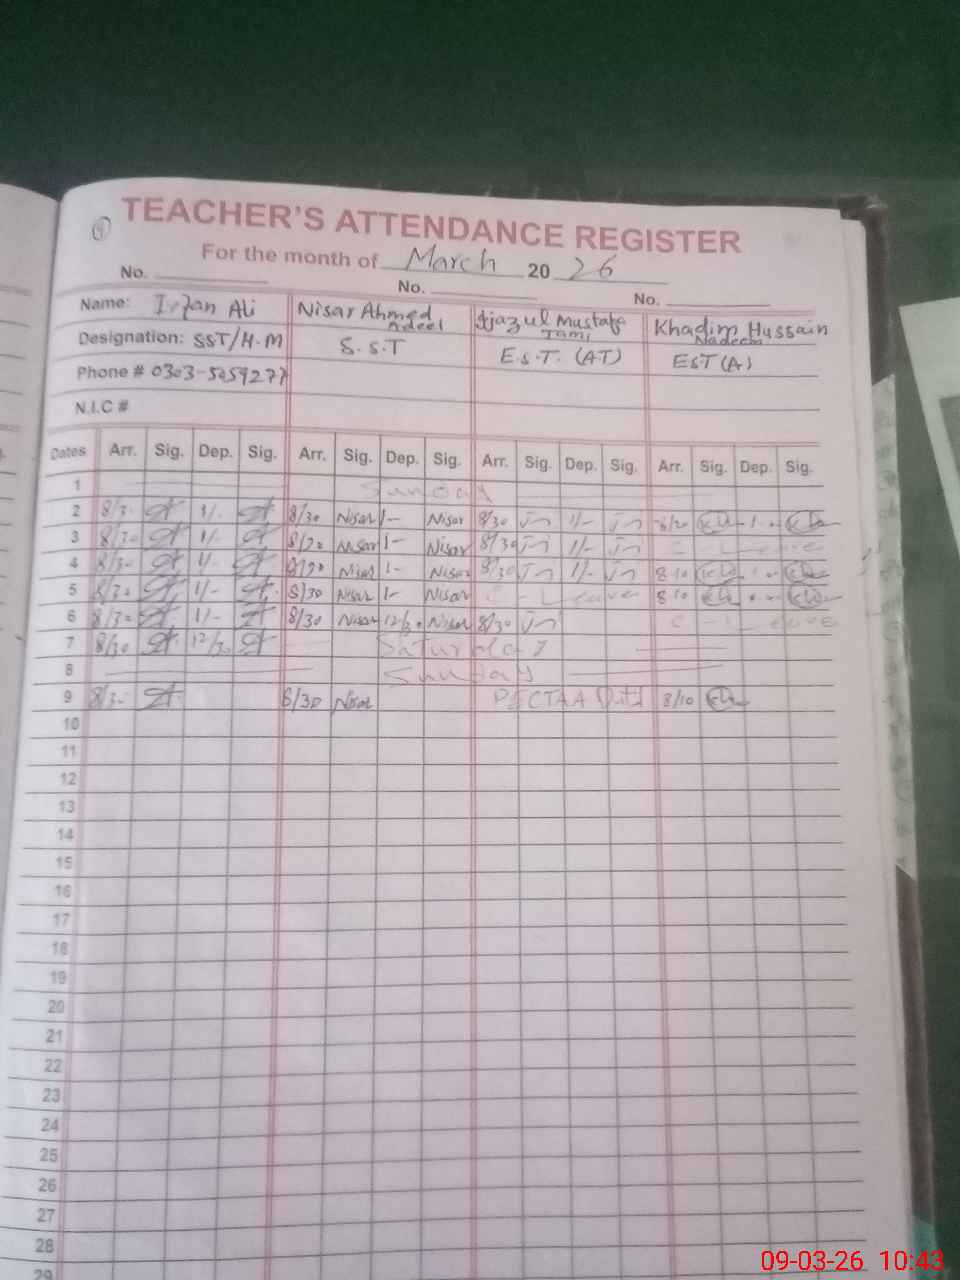 TEACHER'S ATTENDANCE REGISTER
For the month of March 20 26
No. No. No.
Name: Irfan Ali Nisar Ahmed Adeel Ijazul Mustafa Khadim Hussain Nadeem
Designation: SST/H.M S.S.T E.S.T. (AT) EST (A)
Phone # 0303-5059277
N.I.C #
Dates Arr. Sig. Dep. Sig. Arr. Sig. Dep. Sig. Arr. Sig. Dep. Sig. Arr. Sig. Dep. Sig.
1 Sunday
2 8/30 1/- 8/30 Nisar 1- Nisar 8/30 1/-
3 8/30 1/- 8/30 Nisar 1- Nisar 8/30 1/- C-Leave
4 8/30 1/- 8/30 Nisar 1- Nisar 8/30 1/- 8 10
5 8/30 1/- 8/30 Nisar 1- Nisar C-Leave 8 10
6 8/30 1/- 8/30 Nisar 12/30 Nisar 8/30 C-Leave
7 8/30 12/30 Saturday
8 Sunday
9 8/30 8/30 Nisar PECTAA 8/10
10
11
12
13
14
15
16
17
18
19
20
21
22
23
24
25
26
27
28
29
09-03-26 10:43